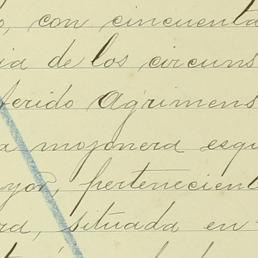 o, con cincuenta
ia de los circuns
ferido Agrimens
a mojonera esqu
yor, pertenecient
ra, situada en